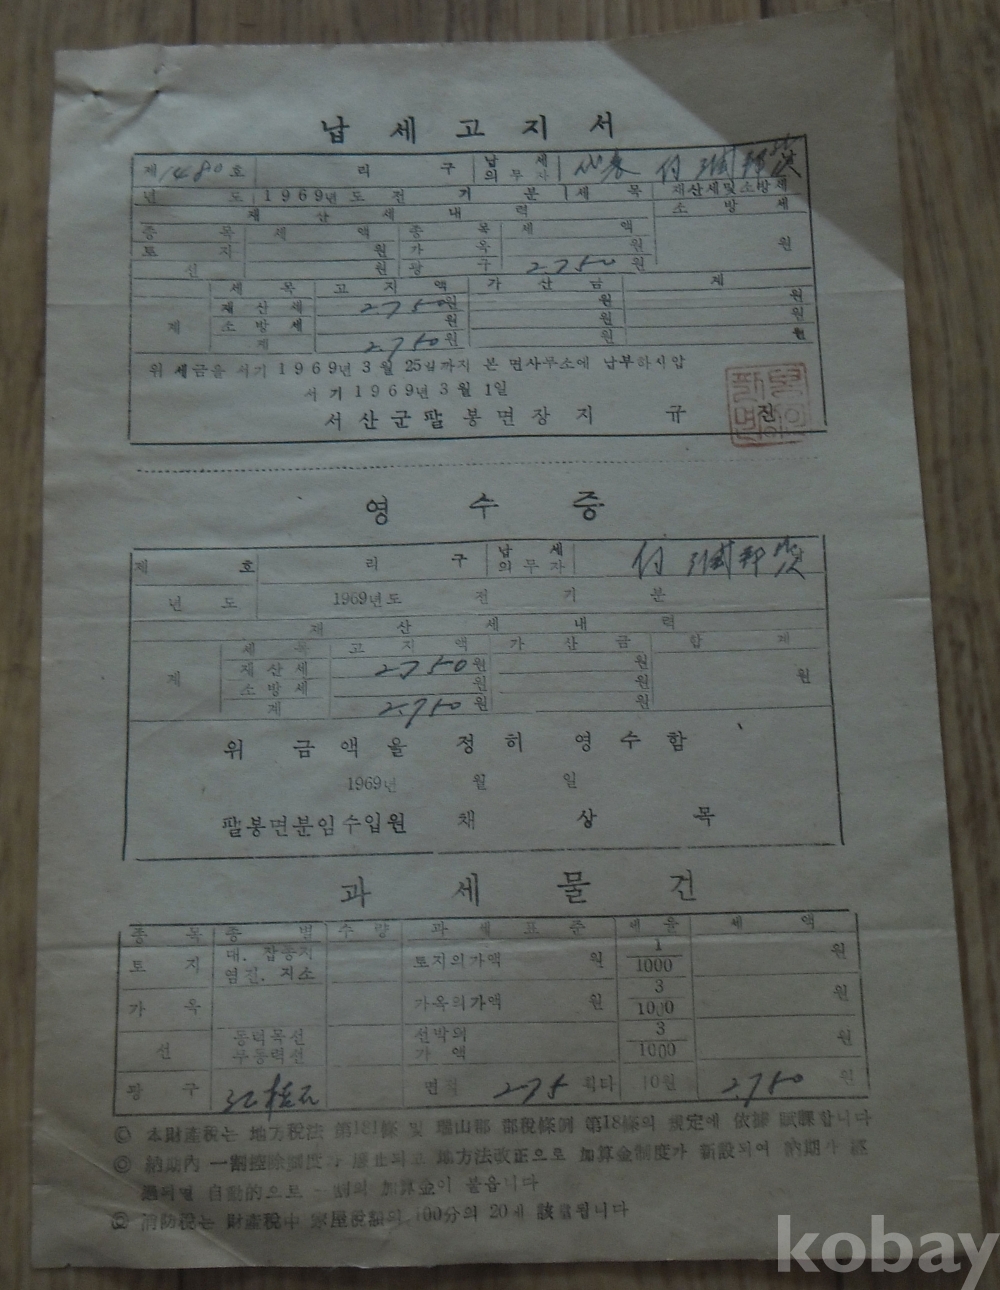 납세고지서
제 1480 호 리 구 납세의무자
년도 1969년도 전기분 세목 재산세및소방세
재산세내력 소방세
종목 세액 종목 세액
토지 원 가옥 원 원
선 원 광구 2750원
세목 고지액 가산금 계
재산세 2750원 원 원
계 소방세 원 원 원
계 2750원 원 원
위 세금을 서기 1969년 3월 25일까지 본 면사무소에 납부하시압
서기 1969년 3월 1일
서산군팔봉면장 지 규 진
영수증
제 호 리 구 납세의무자
년도 1969년도 전기분
재산세내력
세목 고지액 가산금 합계
재산세 2750원 원
계 소방세 원 원 원
계 2750원 원
위 금액을 정히 영수함
1969년 월 일
팔봉면분임수입원 채 상 목
과세물건
종목 종별 수량 과세표준 세율 세액
토지 대. 잡종지 염전. 지소 토지의가액 원 1/1000 원
가옥 가옥의가액 원 3/1000 원
선 동력목선 무동력선 선박의가액 3/1000 원
광구 면적 275 10원 2750 원
◎ 本財産税는 地方税法 第181條 및 瑞山郡 郡税條例 第18條의 規定에 依據 賦課합니다
◎ 納期內 一割控除制度가 廢止되고 地方法改正으로 加算金制度가 新設되어 納期가 經
過되면 自動的으로 一割의 加算金이 붙읍니다
◎ 消防税는 財産税中 家屋税額의 100分의 20에 該當됩니다
kobay